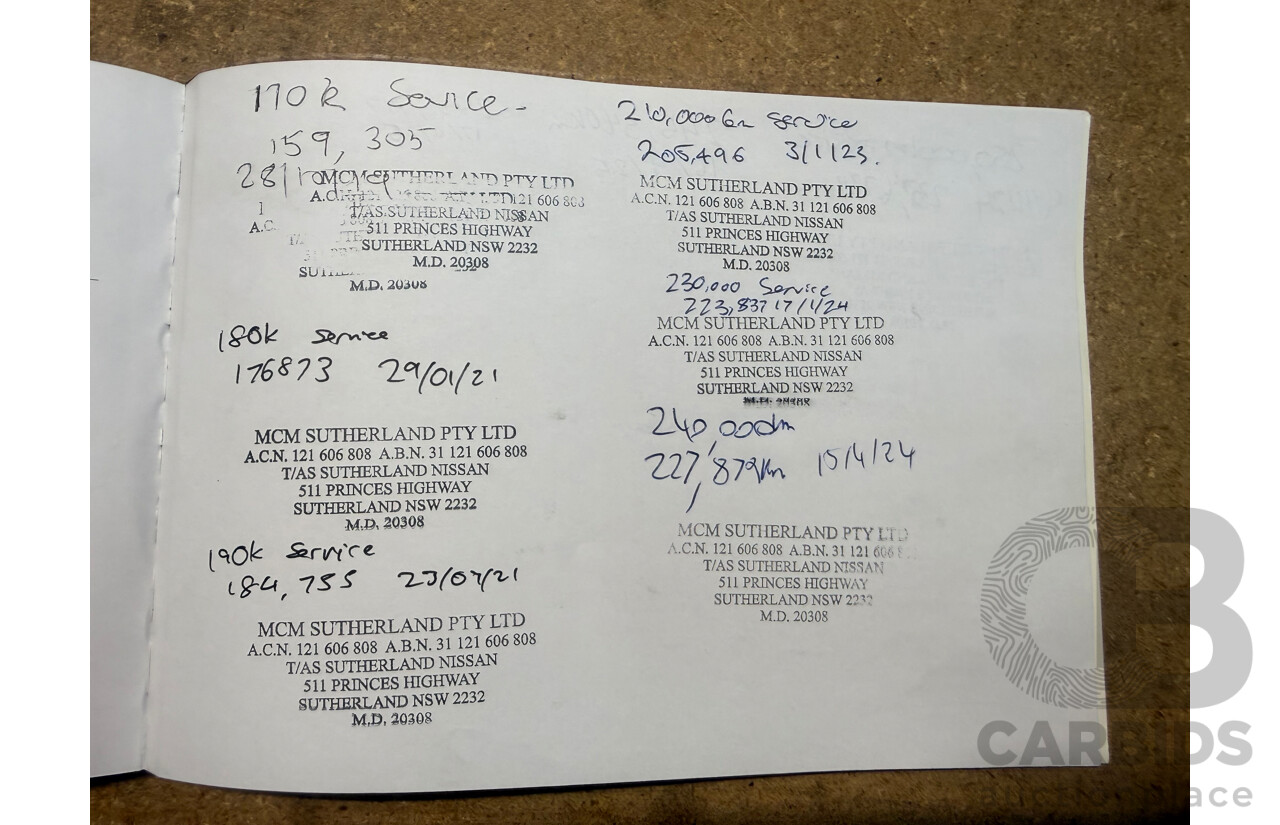 170k Service -
159, 305
28/
MCM SUTHERLAND PTY LTD
121 606 808
T/AS SUTHERLAND NISSAN
A.C.
511 PRINCES HIGHWAY
SUTHERLAND NSW 2232
M.D. 20308
M.D. 20308
180k service
176873 29/01/21
MCM SUTHERLAND PTY LTD
A.C.N. 121 606 808 A.B.N. 31 121 606 808
T/AS SUTHERLAND NISSAN
511 PRINCES HIGHWAY
SUTHERLAND NSW 2232
M.D. 20308
190k Service
184, 755 23/07/21
MCM SUTHERLAND PTY LTD
A.C.N. 121 606 808 A.B.N. 31 121 606 808
T/AS SUTHERLAND NISSAN
511 PRINCES HIGHWAY
SUTHERLAND NSW 2232
M.D. 20308
210,000km service
205,496 3/1/23.
MCM SUTHERLAND PTY LTD
A.C.N. 121 606 808 A.B.N. 31 121 606 808
T/AS SUTHERLAND NISSAN
511 PRINCES HIGHWAY
SUTHERLAND NSW 2232
M.D. 20308
230,000 Service
223,837 17/1/24
MCM SUTHERLAND PTY LTD
A.C.N. 121 606 808 A.B.N. 31 121 606 808
T/AS SUTHERLAND NISSAN
511 PRINCES HIGHWAY
SUTHERLAND NSW 2232
M.D. 20308
240,000km
227,879km 15/4/24
MCM SUTHERLAND PTY LTD
A.C.N. 121 606 808 A.B.N. 31 121 606 8
T/AS SUTHERLAND NISSAN
511 PRINCES HIGHWAY
SUTHERLAND NSW 2232
M.D. 20308
CB
CARBIDS